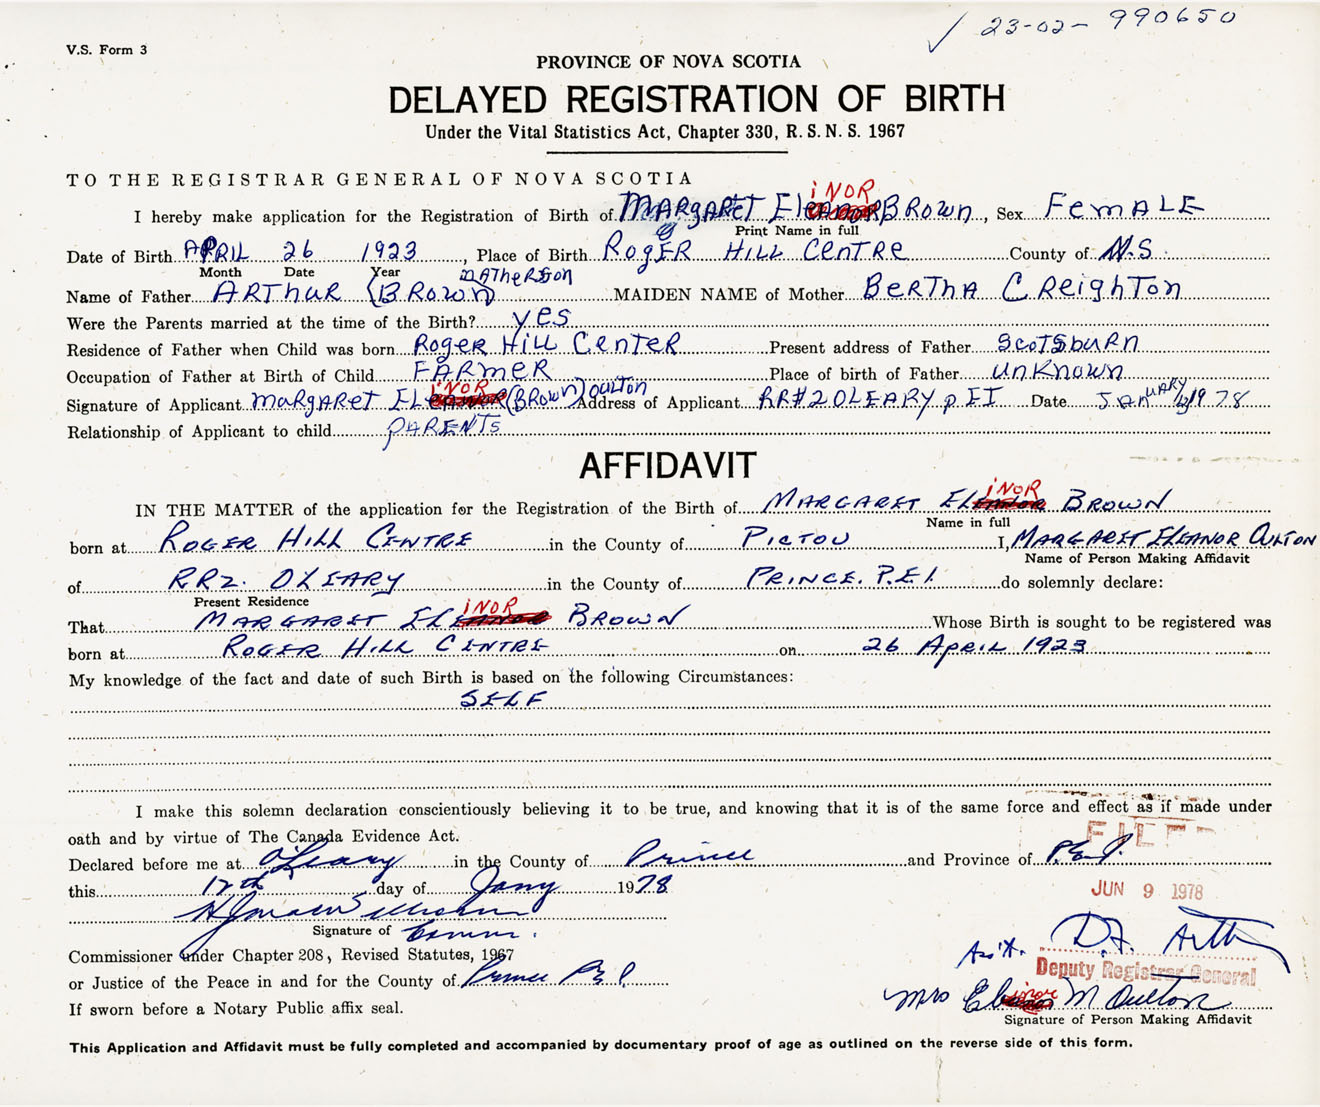 ✓ 23-02-990650
V.S. Form 3
PROVINCE OF NOVA SCOTIA
DELAYED REGISTRATION OF BIRTH
Under the Vital Statistics Act, Chapter 330, R. S. N. S. 1967
TO THE REGISTRAR GENERAL OF NOVA SCOTIA
iNOR
I hereby make application for the Registration of Birth of MARgARET EleanoR BROWN, Sex FemALE
Print Name in full
Date of Birth APRIL 26 1923, Place of Birth RogER HiLL CeNTRe County of N.S
Month Date Year MATHeRSON
Name of Father ARTHuR (BROWN) MAIDEN NAME of Mother BeRTHA CReigHTON
Were the Parents married at the time of the Birth? yes
Residence of Father when Child was born RogeR HiLL CenTeR Present address of Father ScoTSbuRN
Occupation of Father at Birth of Child FARmeR Place of birth of Father unKNown
iNOR
Signature of Applicant maRgARet ELeanoR (BROWN) OulTON Address of Applicant RR#2 OLEARY P EI Date JANuARY 12/1978
Relationship of Applicant to child PARENTS
AFFIDAVIT
iNOR
IN THE MATTER of the application for the Registration of the Birth of MARGARET ELEANOR BROWN
Name in full
born at ROGER HILL CENTRE in the County of PICTOU I, MARGARET ELEANOR OULTON
Name of Person Making Affidavit
of RR2. OLEARY in the County of PRINCE. P.E.I. do solemnly declare:
Present Residence
iNOR
That MARGARET ELEANOR BROWN Whose Birth is sought to be registered was
born at ROGER HILL CENTRE on 26 APRIL 1923
My knowledge of the fact and date of such Birth is based on the following Circumstances:
SELF
I make this solemn declaration conscientiously believing it to be true, and knowing that it is of the same force and effect as if made under
oath and by virtue of The Canada Evidence Act.
FILED
Declared before me at O'Leary in the County of Prince and Province of P.E.I.
this 12th day of Jany 1978
JUN 9 1978
Signature of Comm.
Commissioner under Chapter 208, Revised Statutes, 1967
Ass't. D.F.
Deputy Registrar General
or Justice of the Peace in and for the County of Prince P.E.I.
inor
Mrs Eleanor M Oulton
If sworn before a Notary Public affix seal.
Signature of Person Making Affidavit
This Application and Affidavit must be fully completed and accompanied by documentary proof of age as outlined on the reverse side of this form.